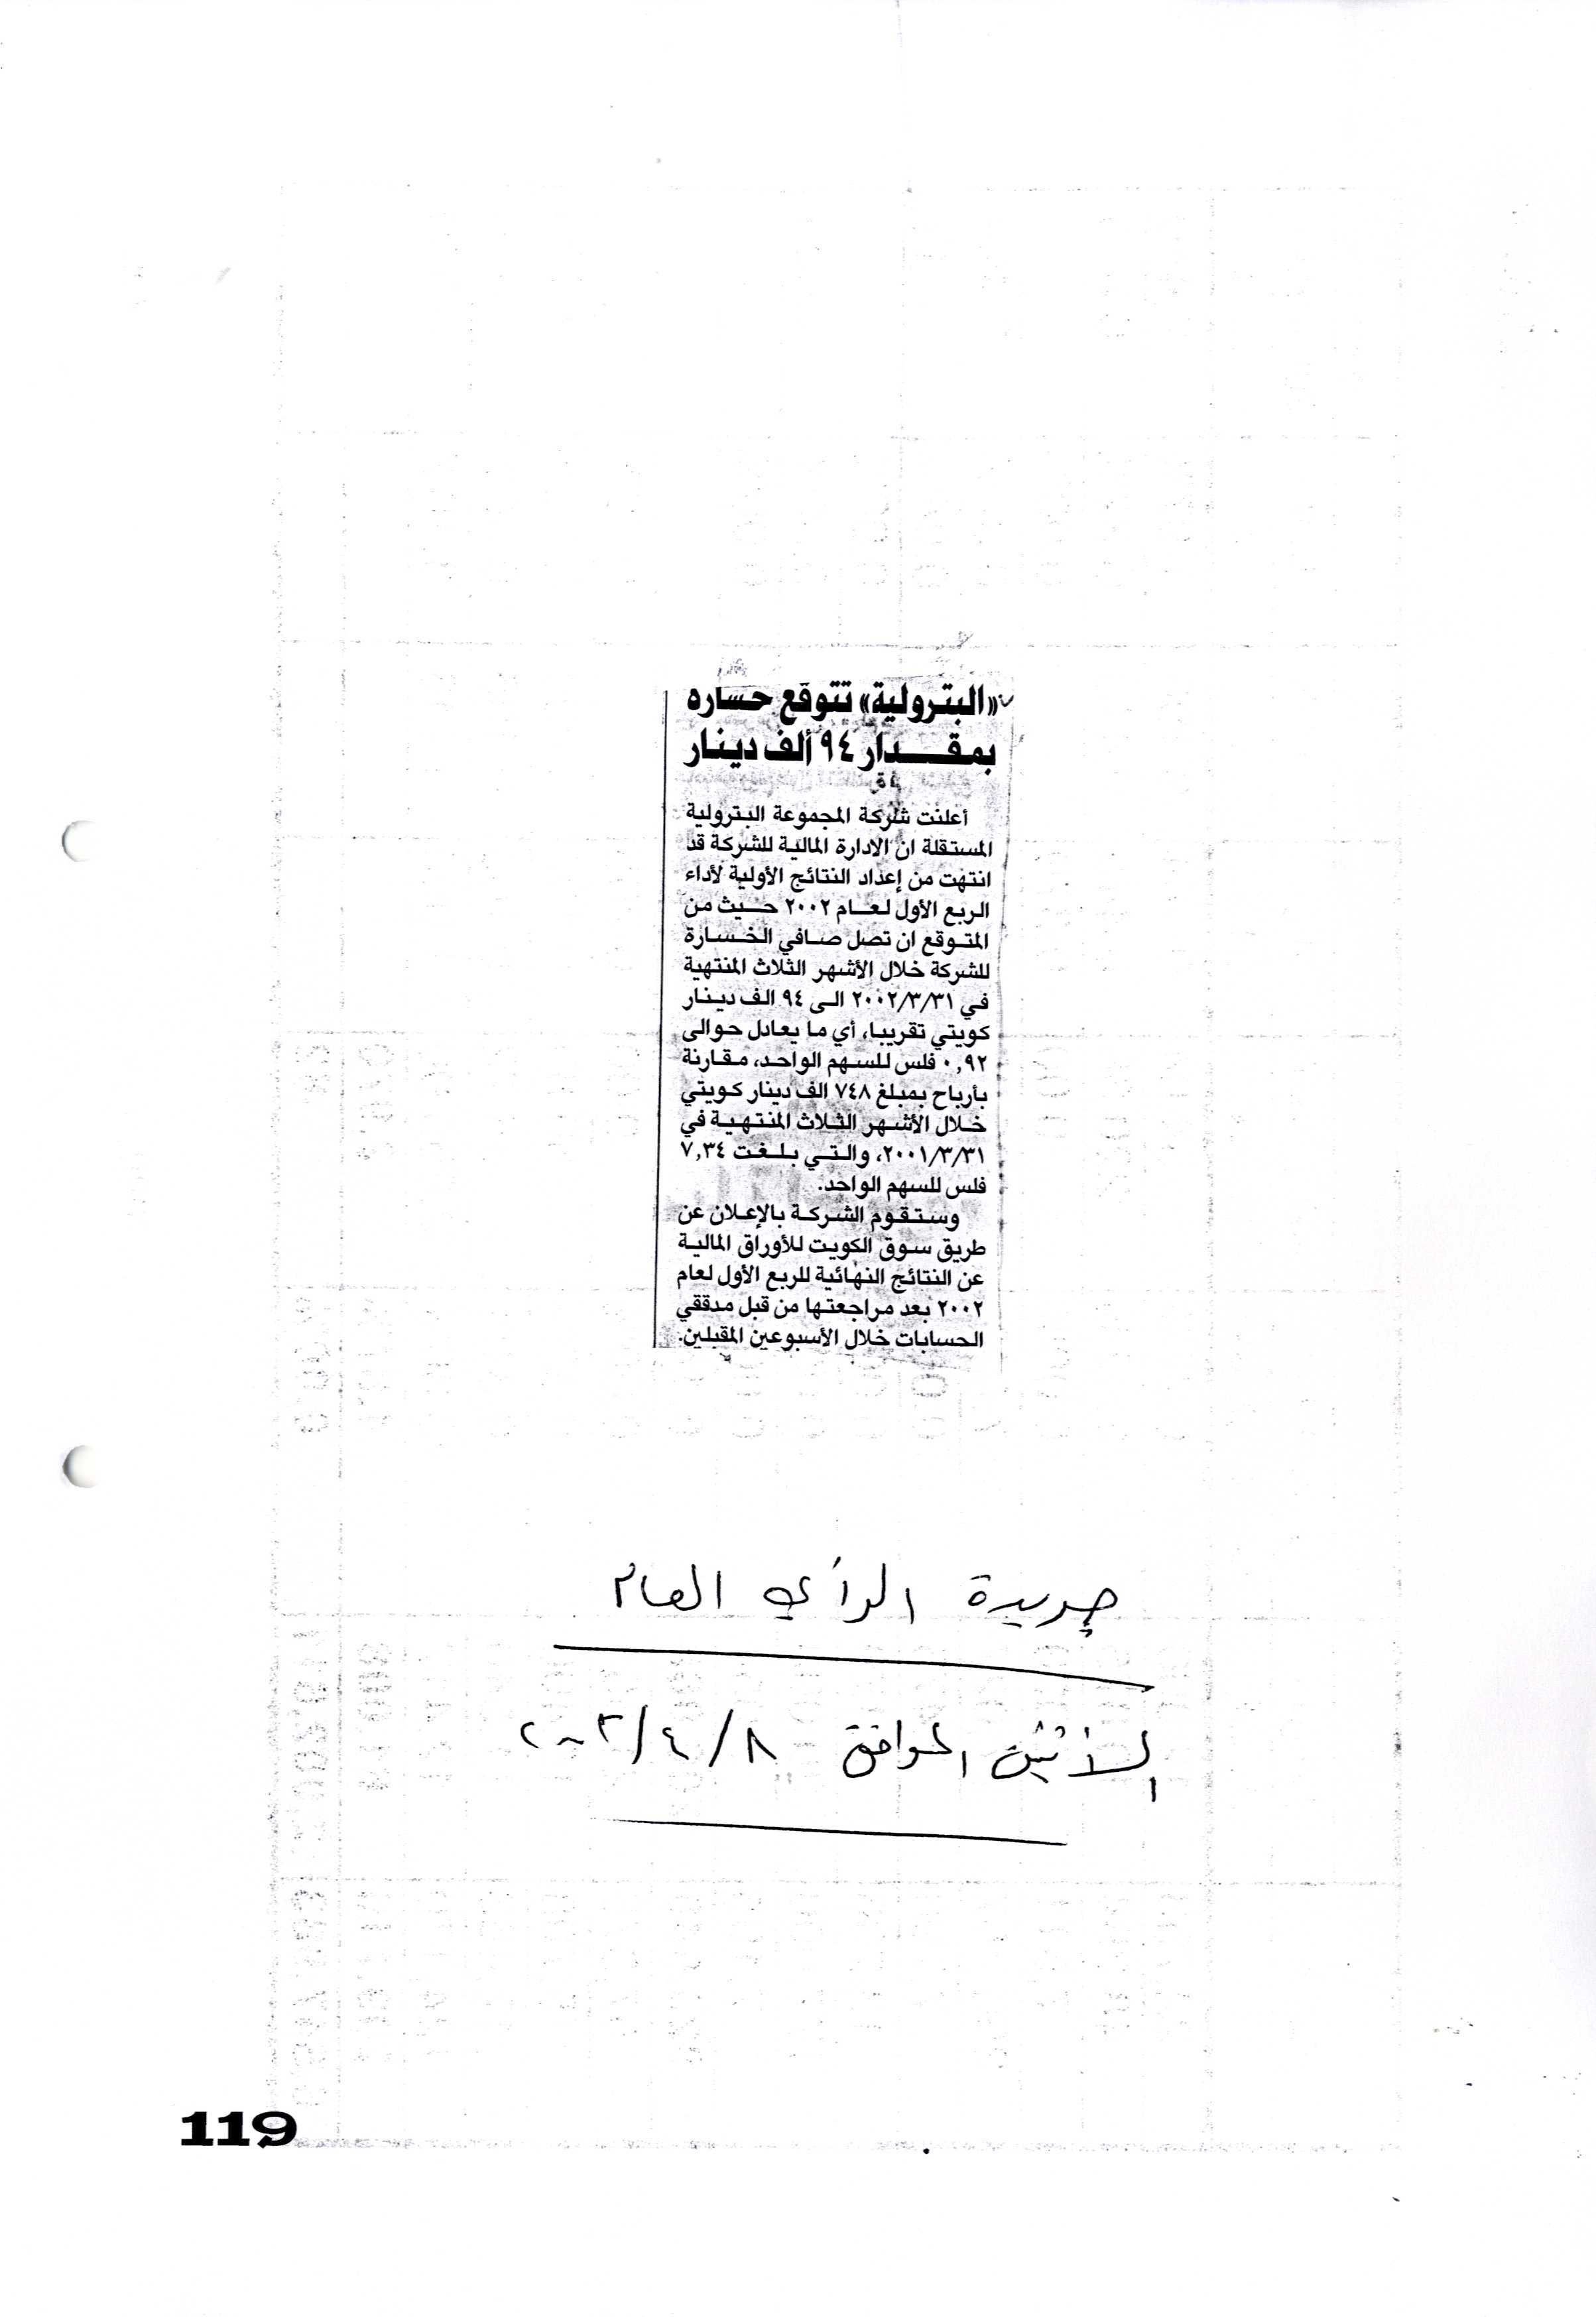 «البترولية» تتوقع خساره
بمقدار ٩٤ ألف دينار
أعلنت شركة المجموعة البترولية
المستقلة ان الادارة المالية للشركة قد
انتهت من إعداد النتائج الأولية لأداء
الربع الأول لعام ٢٠٠٢ حيث من
المتوقع ان تصل صافي الخسارة
للشركة خلال الأشهر الثلاث المنتهية
في ٢٠٠٢/٣/٣١ الى ٩٤ الف دينار
كويتي تقريبا، أي ما يعادل حوالى
٠,٩٢ فلس للسهم الواحد، مقارنة
بأرباح بمبلغ ٧٤٨ الف دينار كويتي
خلال الأشهر الثلاث المنتهية في
٢٠٠١/٣/٣١، والتي بلغت ٧,٣٤
فلس للسهم الواحد.
وستقوم الشركة بالإعلان عن
طريق سوق الكويت للأوراق المالية
عن النتائج النهائية للربع الأول لعام
٢٠٠٢ بعد مراجعتها من قبل مدققي
الحسابات خلال الأسبوعين المقبلين.
جريدة الرأي العام
الأثنين الموافق ٢٠٠٢/٤/٨
119